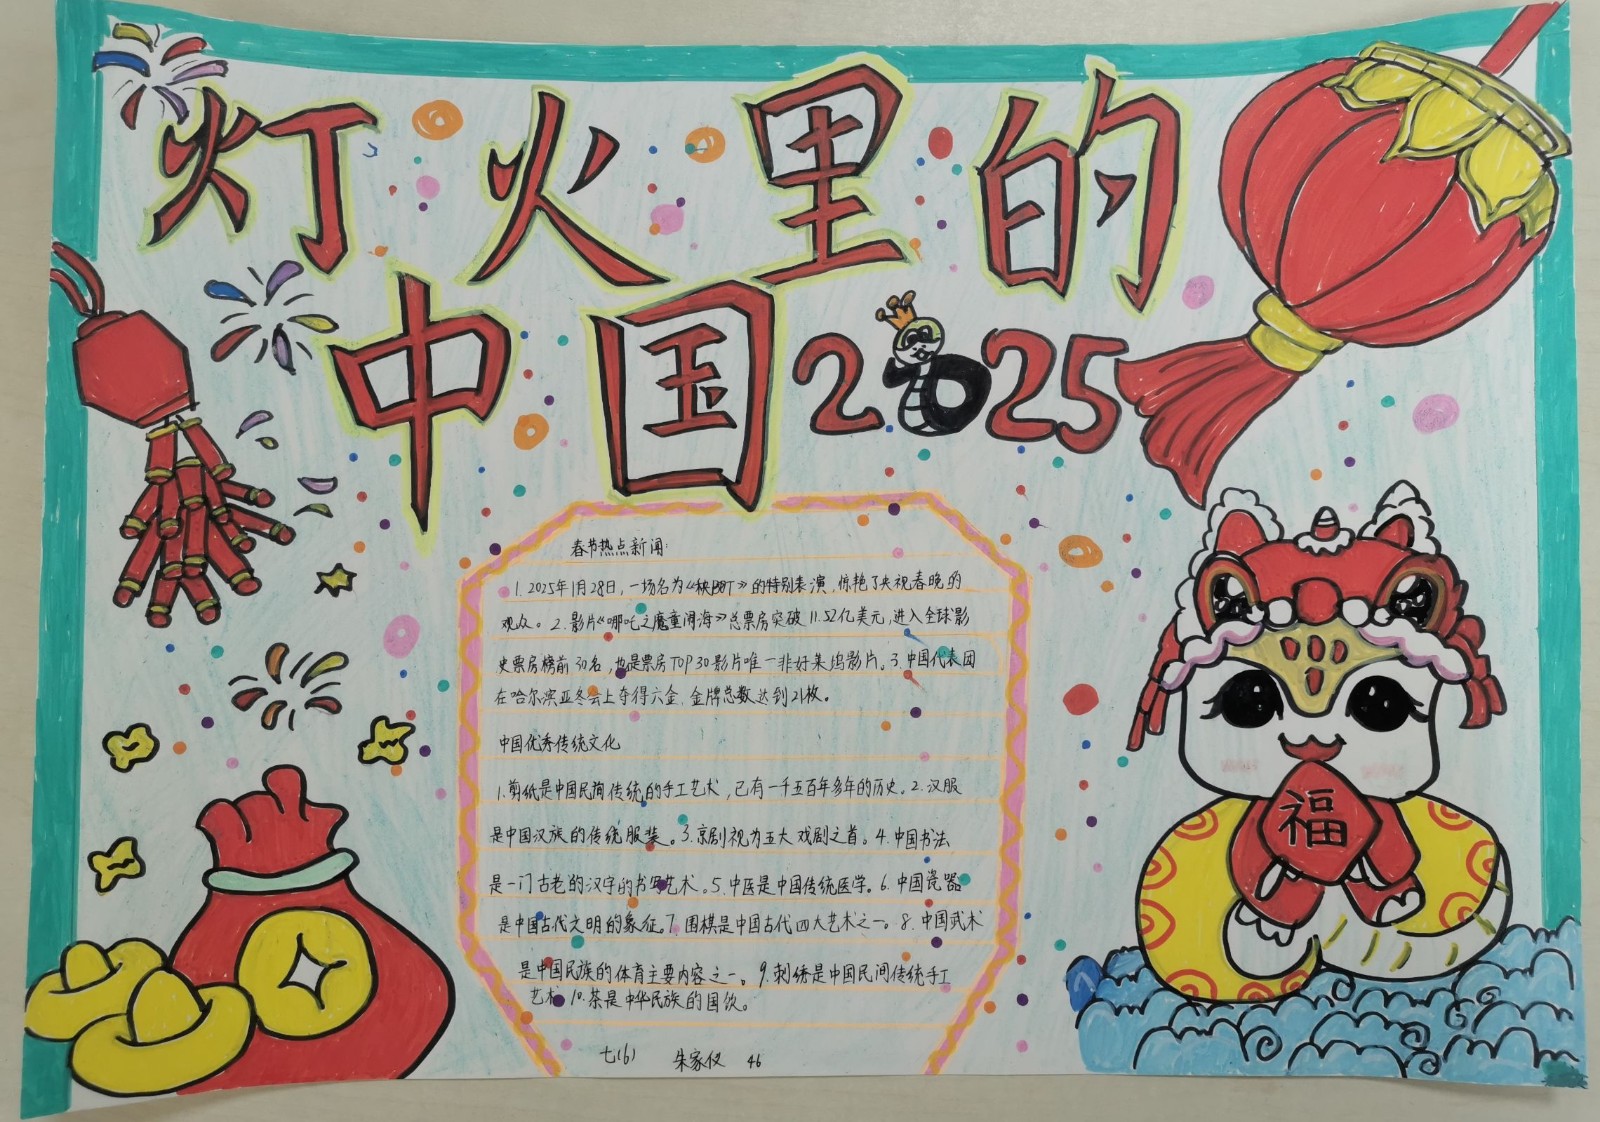 灯火里的
中国2025
春节热点新闻:
1.2025年1月28日,一场名为《秧BOT》的特别表演,惊艳了央视春晚的
观众。2.影片《哪吒之魔童闹海》总票房突破11.52亿美元,进入全球影
史票房榜前30名,也是票房TOP30影片唯一非好莱坞影片。3.中国代表团
在哈尔滨亚冬会上夺得六金,金牌总数达到21枚。
中国优秀传统文化
1.剪纸是中国民间传统的手工艺术,已有一千五百年多年的历史。2.汉服
是中国汉族的传统服装。3.京剧视为五大戏剧之首。4.中国书法
是一门古老的汉字的书写艺术。5.中医是中国传统医学。6.中国瓷器
是中国古代文明的象征。7.围棋是中国古代四大艺术之一。8.中国武术
是中国民族的体育主要内容之一。9.刺绣是中国民间传统手工
艺术 10.茶是中华民族的国饮。
七(6) 朱家仪 46
福